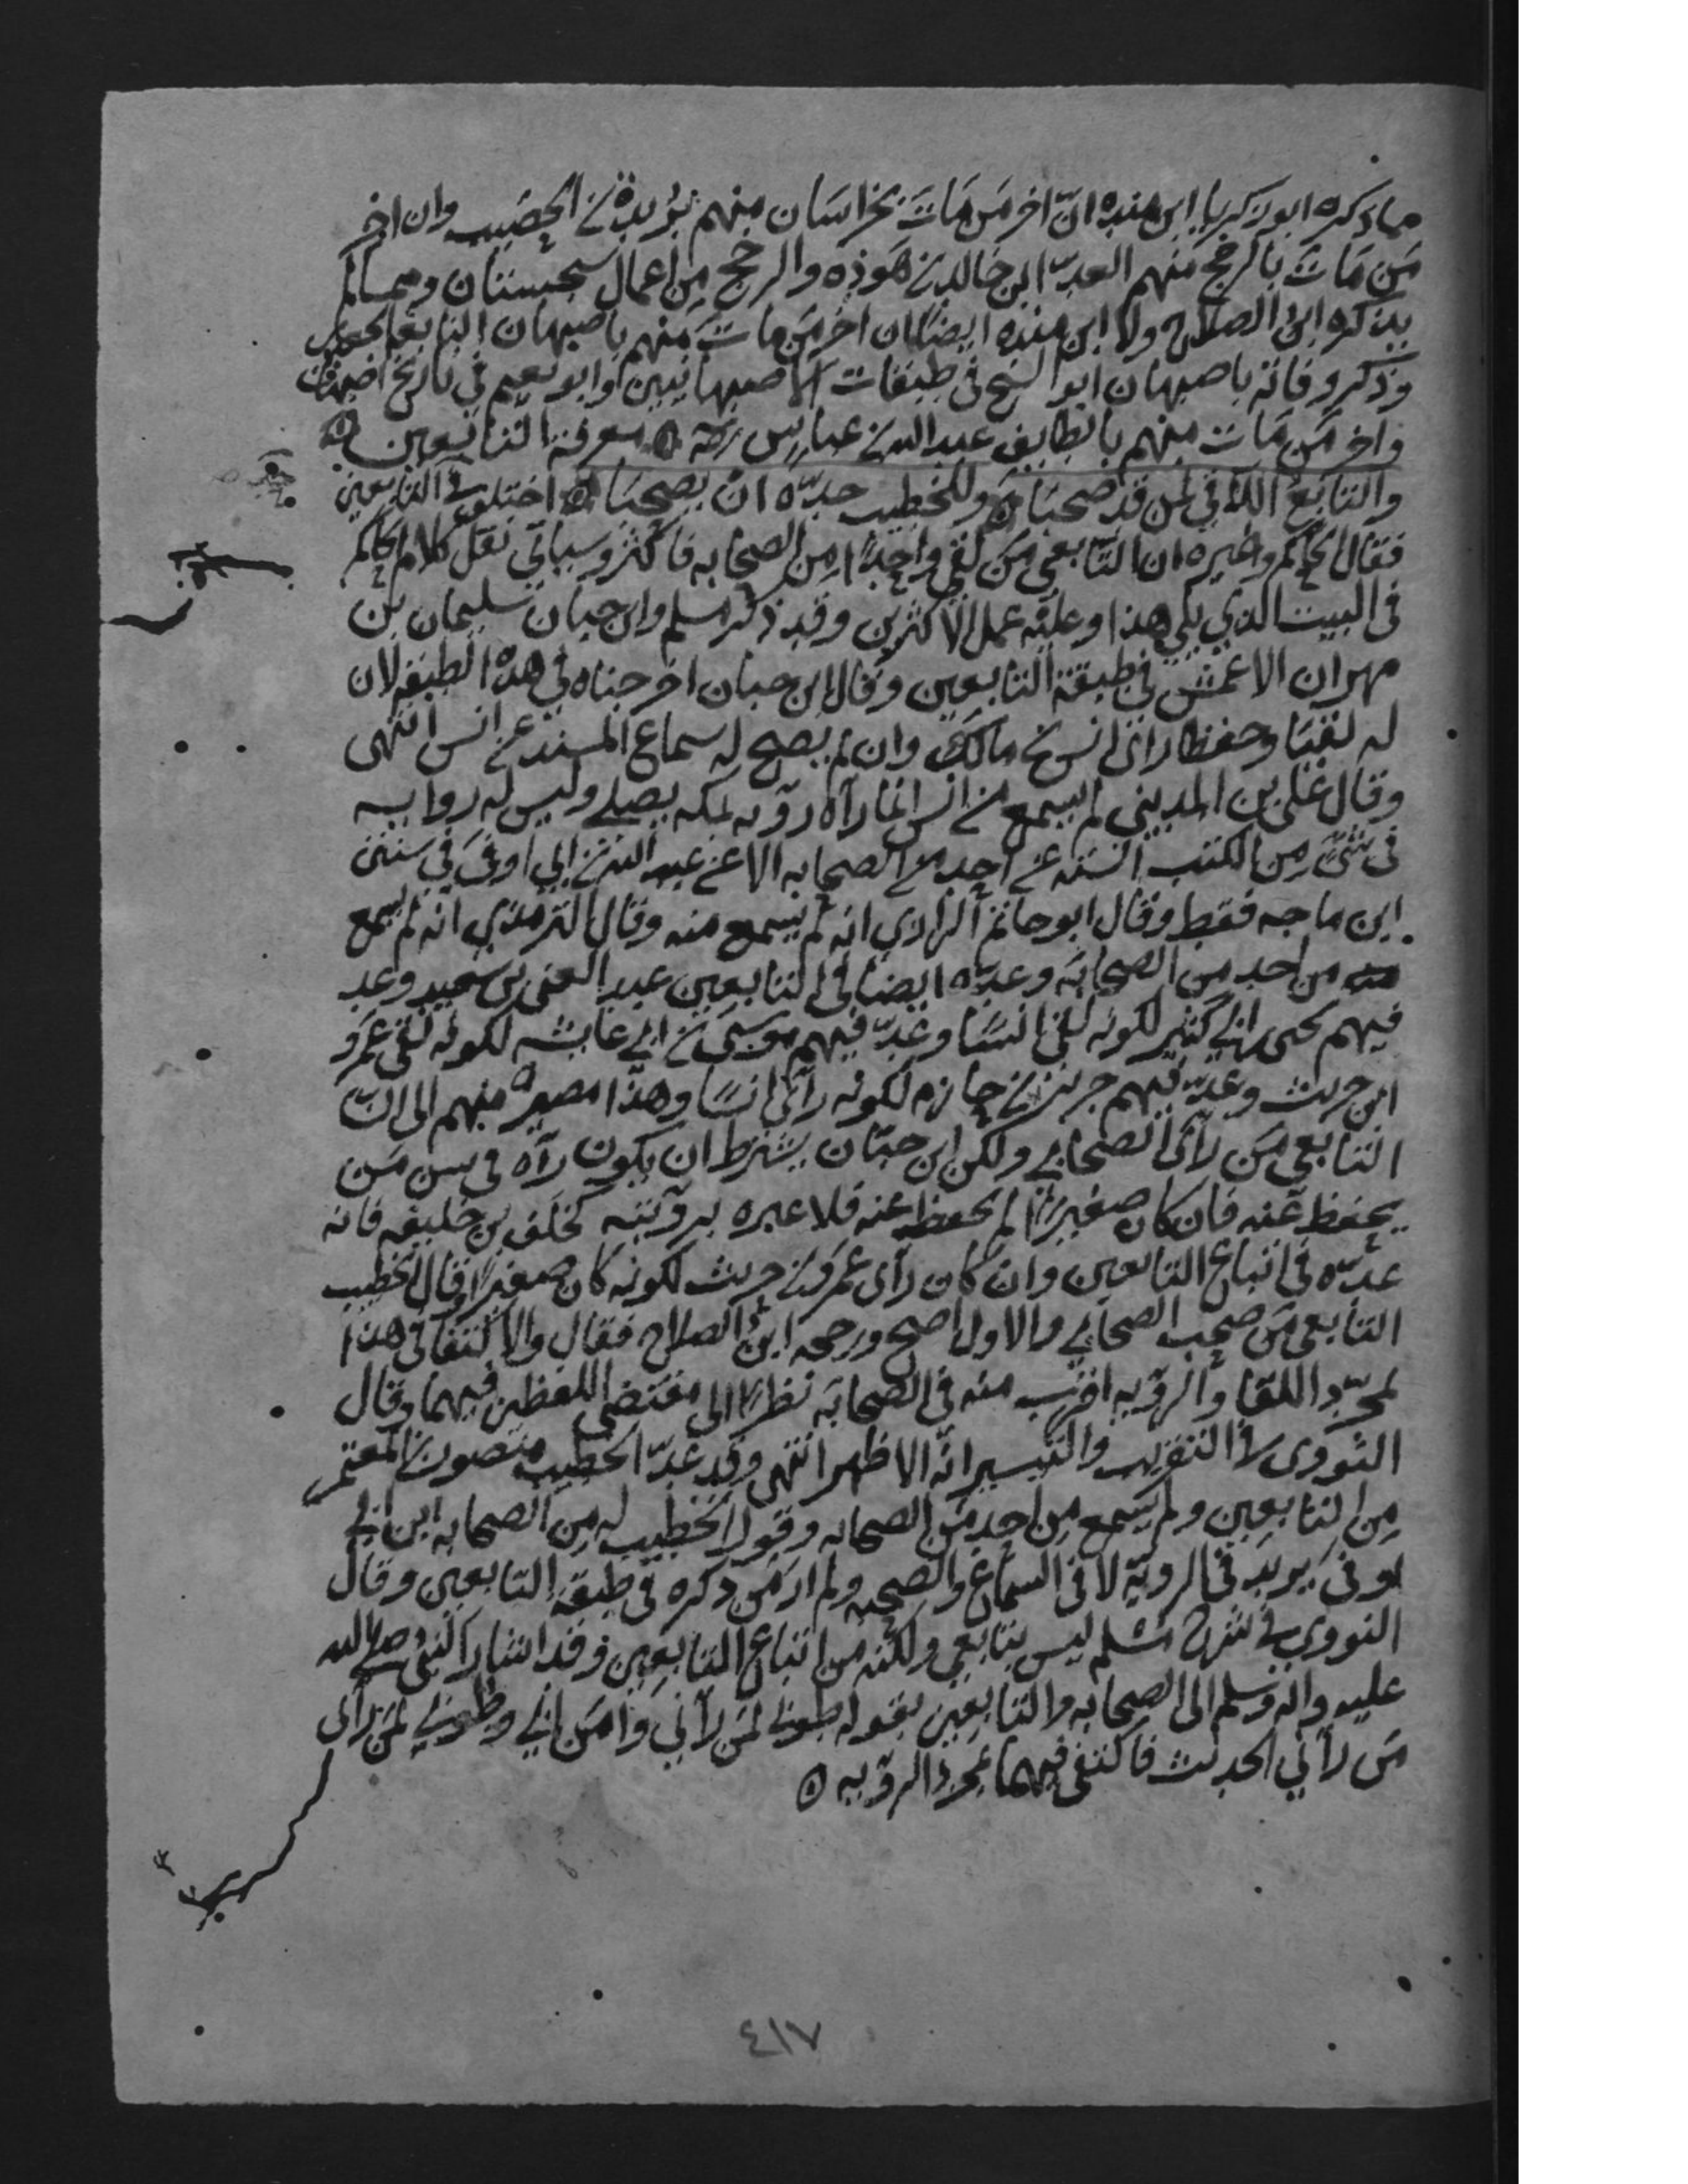 ما ذكره ابو زكريا ابن منده انّ اخر من مات بخراسان منهم بريدة بن الحصيب وان اخر
من مات بالرخج منهم العدّا ابن خالد بن هوذه والرخج من اعمال سجستان ومما لم
يذكره ابن الصلاح ولا ابن منده ايضًا ان اخر من مات منهم باصبهان النابغة الجعدى
وذكر وفاته باصبهان ابو الشيخ في طبقات الاصبهانيين وابو نعيم في تاريخ اصبهان
واخر من مات منهم بالطايف عبد الله بن عباس معرفة التابعين
والتابع اللاقي لمن قد صحبا وللخطيب حدّه ان يصحبا اختلف في التابعين
فقال الحاكم وغيره ان التابعي من لقي واحدًا من الصحابه فاكثر وسياتي نقل كلام الحاكم
في البيت الذي يلي هذا وعليه عمل الاكثرين وقد ذكر مسلم وابن حبان سليمان بن
مهران الاعمش في طبقة التابعين وقال ابن حبان اخرجناه في هذه الطبقه لان
له لقيا وحفظا راى انس بن مالك وان لم يصح له سماع المسند عن انس انتهى
وقال على بن المديني لم يسمع من انس انما رآه رؤيه بمكه يصلي وليس له روايه
في شىء من الكتب السته عن احد من الصحابه الا عن عبد الله بن ابي اوفى في سنن
ابن ماجه فقط وقال ابو حاتم الرازي انه لم يسمع منه وقال الترمذي انه لم يسمع
من احد من الصحابة وعدّه ايضا في التابعين عبد الغنى بن سعيد وعد
فيهم يحيى بن ابي كثير لكونه لقي انسًا وعدّ فيهم موسى بن ابي عايشه لكونه لقي عمرو
ابن حريث وعدّ فيهم جرير بن حازم لكونه رآى انسًا وهذا مصير منهم الى انّ
التابعي من رآى الصحابي ولكن ابن حبّان يشترط ان يكون رآه في سن من
يحفظ عنه فان كان صغيرًا لم يحفظ عنه فلا عبره برؤيته كخلف بن خليفه فانه
عدّه في اتباع التابعين وان كان رآى عمرو بن حريث لكونه كان صغيرًا وقال الخطيب
التابعي من صحب الصحابي والاول اصح ورجحه ابن الصلاح فقال والاكتفا في هذا
بمجرّد اللقا والرؤيه اقرب منه في الصحابة نظرًا الى مقتضى اللفظين فيهما وقال
النووى في التقريب والتيسير انّه الاظهر انتهى وقد عدّ الخطيب منصور بن المعتمر
من التابعين ولم يسمع من احد من الصحابه وقول الخطيب له من الصحابه ابن ابي
اوفى يريد في الروية لا في السماع والصحبه ولم ار من ذكره في طبقة التابعين وقال
النووي في شرح مسلم ليس بتابعي ولكنه من اتباع التابعين وقد اشار النبي صلى الله
عليه واله وسلم الى الصحابه والتابعين بقوله طوبى لمن رآني وامن بي وطوبى لمن رآى
من رآني الحديث فاكتفى فيهما بمجرد الرؤيه ه
٤١٧